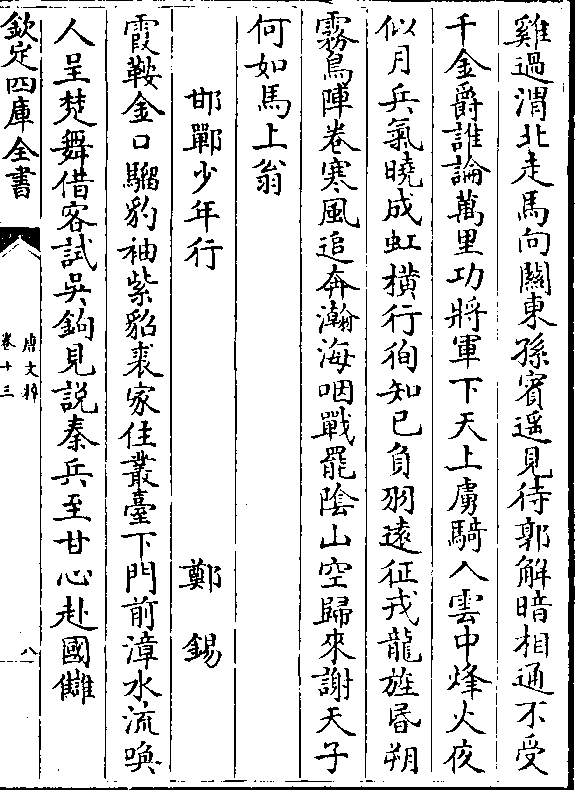 雞過渭北走馬向關東孫賓遥見待郭解暗相通不受
千金爵誰論萬里功將軍下天上虜騎入雲中烽火夜
似月兵氣曉成虹橫行徇知已負羽遠征戎龍旌昬朔
霧鳥陣卷寒風追奔瀚海咽戰罷隂山空歸來謝天子
何如馬上翁
邯鄲少年行 鄭錫
霞鞍金口騮豹袖紫貂裘家住叢臺下門前漳水流喚
人呈楚舞借客試吳鉤見説秦兵至甘心赴國讎
欽定四庫全書
唐文粹
卷十三
八